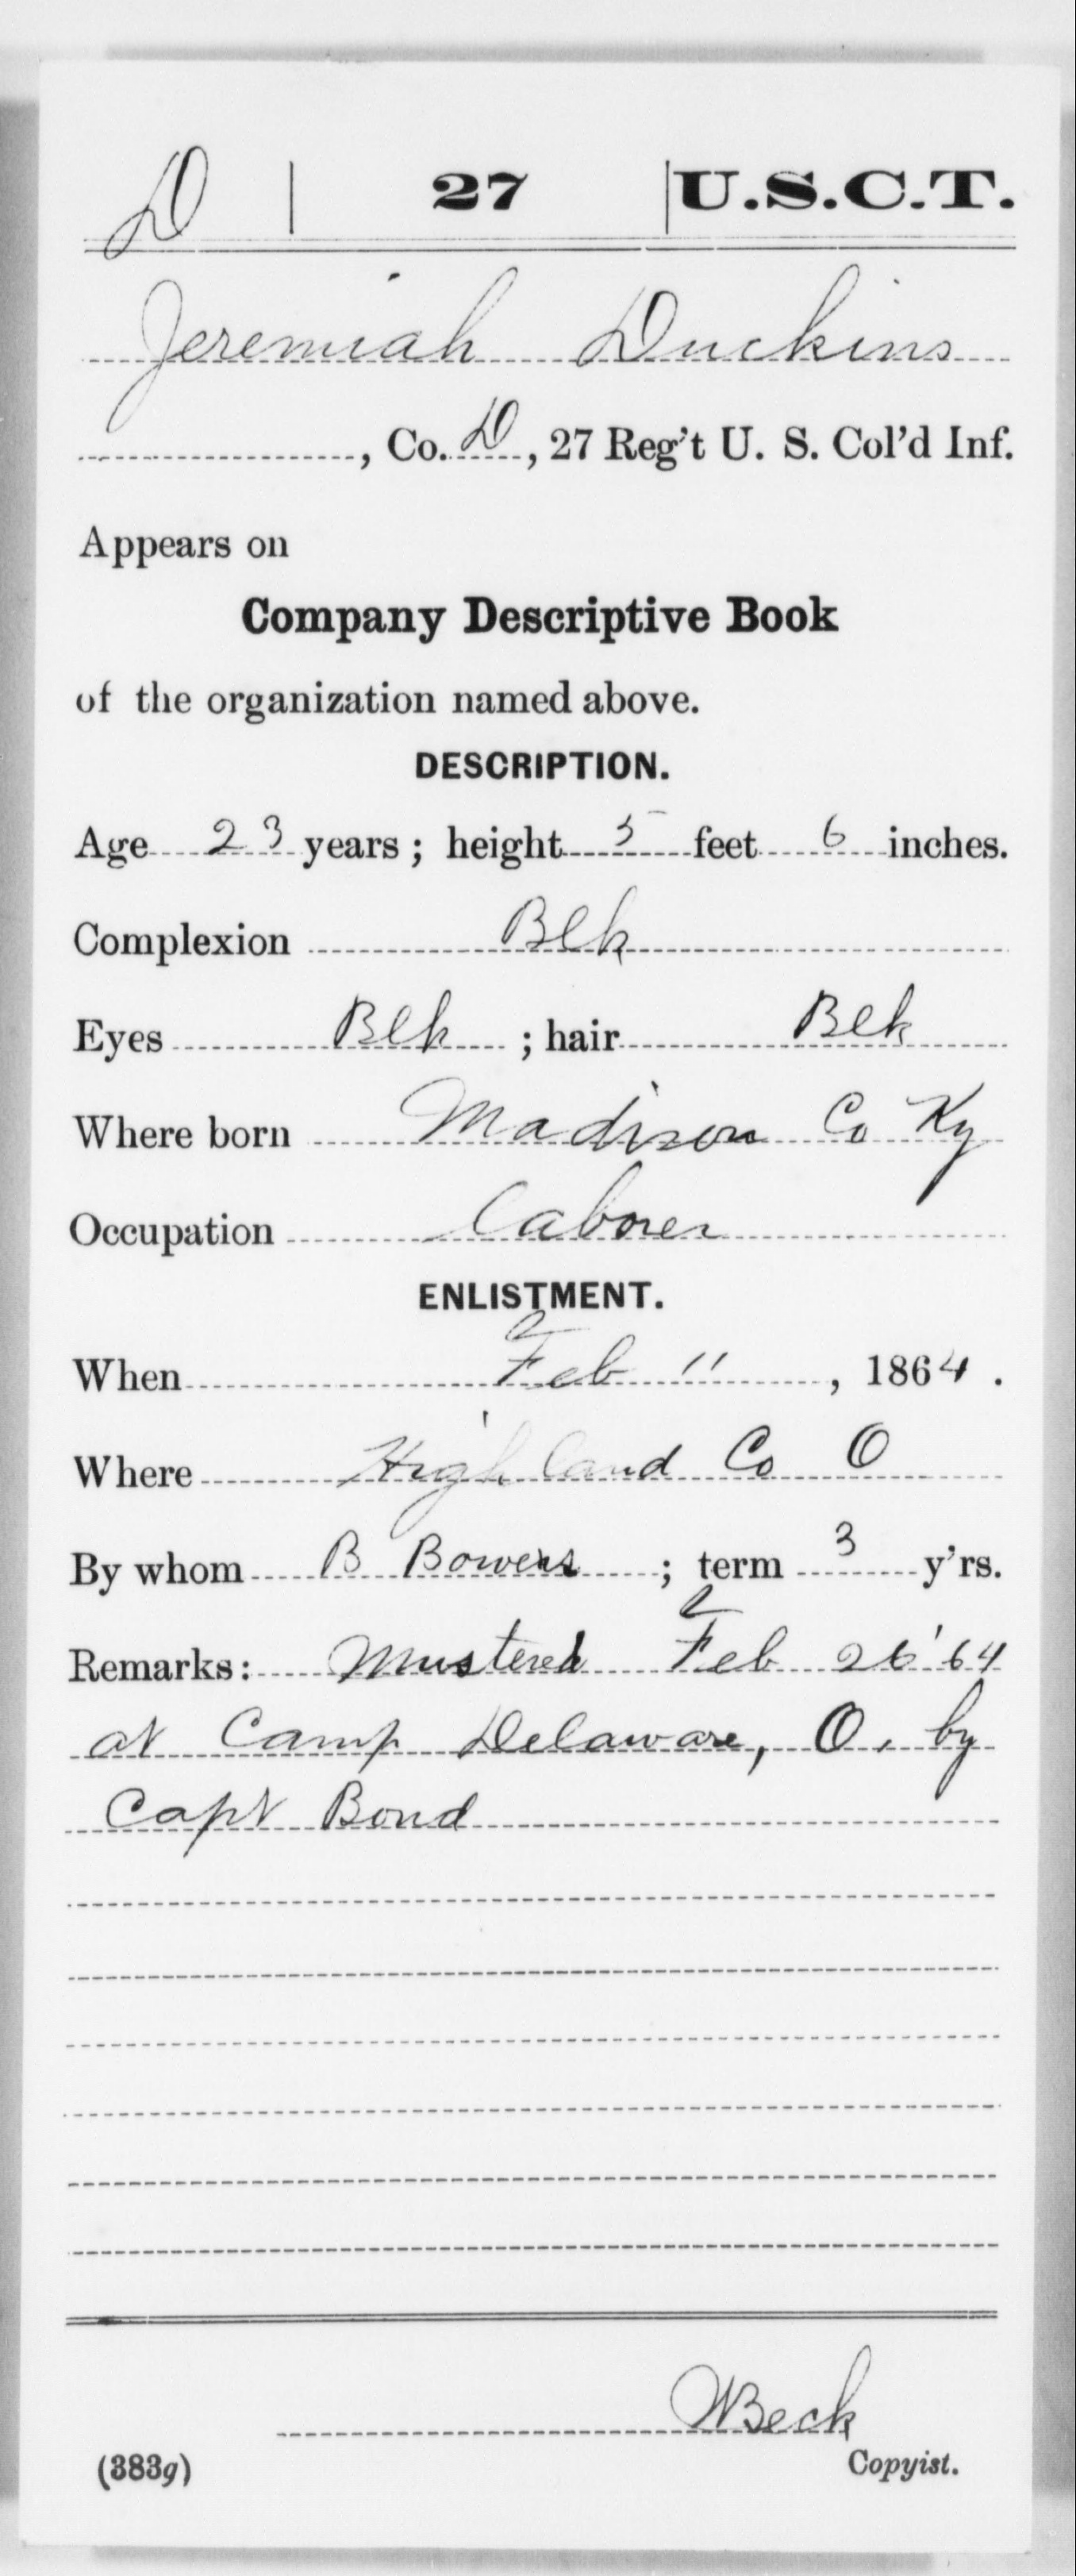 D | 27 | U.S.C.T.
Jeremiah Duckins
, Co. D, 27 Reg't U. S. Col'd Inf.
Appears on
Company Descriptive Book
of the organization named above.
DESCRIPTION.
Age 23 years; height 5 feet 6 inches.
Complexion Blk
Eyes Blk; hair Blk
Where born Madison Co Ky
Occupation Laborer
ENLISTMENT.
When Feb 11, 1864.
Where Highland Co O
By whom B Bowers; term 3 y'rs.
Remarks: Mustered Feb 26 '64
at Camp Delaware, O, by
Capt Bond
WBeck
(383g) Copyist.